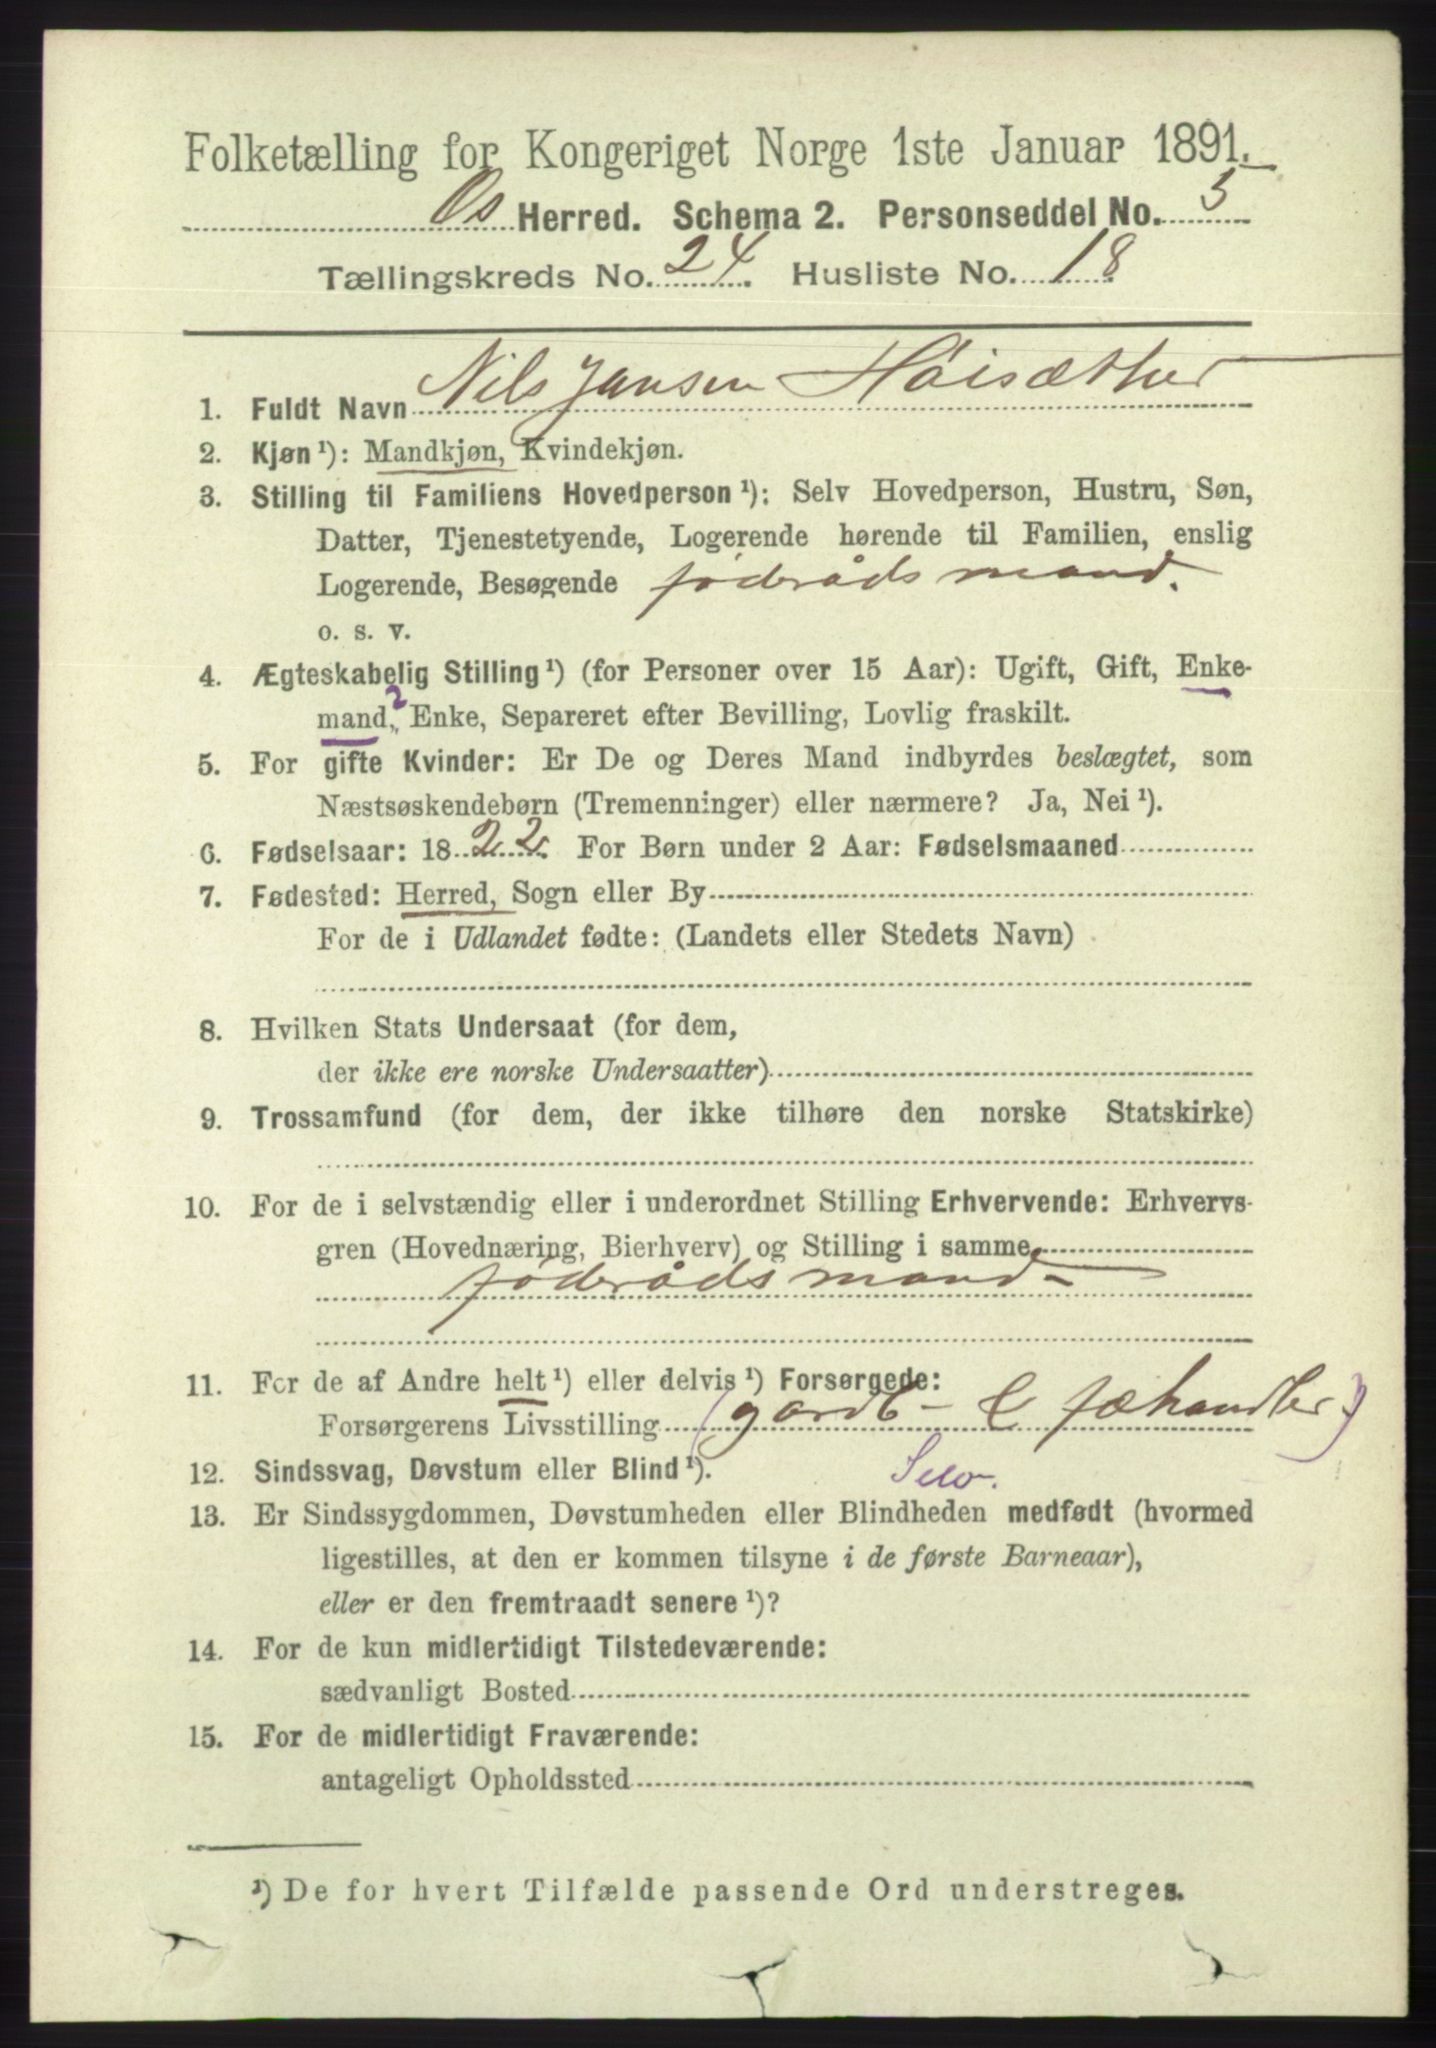 Folketælling for Kongeriget Norge 1ste Januar 1891.
Os Herred. Schema 2. Personseddel No. 5
Tællingskreds No. 24. Husliste No. 18
1. Fuldt Navn Nils Jansen Höisæther
2. Kjøn¹): Mandkjøn, Kvindekjøn.
3. Stilling til Familiens Hovedperson¹): Selv Hovedperson, Hustru, Søn,
Datter, Tjenestetyende, Logerende hørende til Familien, enslig
Logerende, Besøgende föderådsmand.
o. s. v.
4. Ægteskabelig Stilling¹) (for Personer over 15 Aar): Ugift, Gift, Enke-
mand,? Enke, Separeret efter Bevilling, Lovlig fraskilt.
5. For gifte Kvinder: Er De og Deres Mand indbyrdes beslægtet, som
Næstsøskendebørn (Tremenninger) eller nærmere? Ja, Nei¹).
6. Fødselsaar: 1822. For Børn under 2 Aar: Fødselsmaaned
7. Fødested: Herred, Sogn eller By
For de i Udlandet fødte: (Landets eller Stedets Navn)
8. Hvilken Stats Undersaat (for dem,
der ikke ere norske Undersaatter)
9. Trossamfund (for dem, der ikke tilhøre den norske Statskirke)
10. For de i selvstændig eller i underordnet Stilling Erhvervende: Erhvervs-
gren (Hovednæring, Bierhverv) og Stilling i samme
föderådsmand
11. For de af Andre helt¹) eller delvis¹) Forsørgede:
Forsørgerens Livsstilling (gardb- & fæhandler)
12. Sindssvag, Døvstum eller Blind¹). Selv.
13. Er Sindssygdommen, Døvstumheden eller Blindheden medfødt (hvormed
ligestilles, at den er kommen tilsyne i de første Barneaar),
eller er den fremtraadt senere¹)?
14. For de kun midlertidigt Tilstedeværende:
sædvanligt Bosted
15. For de midlertidigt Fraværende:
antageligt Opholdssted
¹) De for hvert Tilfælde passende Ord understreges.